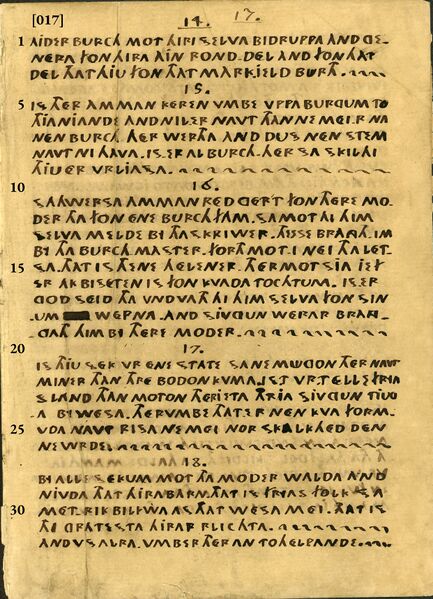 [017]
14. 17.
1 AIDER BURCH MOT HIRI SELVA BIDRUPPA AND GE-
NERA FON HIRA AIN ROND.DEL AND FON THAT
DEL THAT HIU FON THAT MARK.JELD BURTH.
15.
5 IS THER AMMAN KEREN VMBE VPPA BURGUM TO
THJANJANDE AND NIL ER NAVT THAN NE MEI.R NA
NEN BURCH.HER WERTHA AND DUS NEN STEM
NAVT NI HAVA. IS.ER AL BURCH.HER SA SKIL HI
THJU ER VRLJASA.
10 16.
SAHWERSA AMMAN RED GERT FON THERE MO-
DER THA FON ENE BURCH FAM. SA MOT HI HIM
SELVA MELDE BI THA SKRIWER. THISSE BRANGTH IM
BI THA BURCH MASTER. FORTH MOT.I NEI THA LET-
15 SA. THAT IS THENE HELENER. THER MOT SJA JEF
ER AK BISETEN IS FON KVADA TOCHTUM. IS.ER
GOD SEID THA VNDVATH HI HIM SELVA FON SIN-
UM WEPNA. AND SJUGUN WERAR BRANG-
ATH HIM BI THERE MODER.
20 17.
IS THJU SEK VR ENE STATE SA NE MUGON THER NAVT
MINER THAN THRE BODON KVMA. IS.T VR.T ELLE FRYA
SLAND THAN MOTON THER ETSA THRJA SJUGUN TJUG
A BYWESA. THERVMBE THAT ER NEN KVA FORM-
25 VDA NAVT RISA NE MEI NOR SKALKHED DEN
NE WRDE.
18.
BI ALLE SEKUM MOT THA MODER WALDA AND
NJUDA THAT HIRA BARN. THAT IS FRYAS FOLK SA
30 MET.RIK BILIWA AS THAT WESA MEI. THAT IS
THI GRATESTA HIRAR PLICHTA.
AND VS ALRA. VMBE THER AN TO HELPANDE.